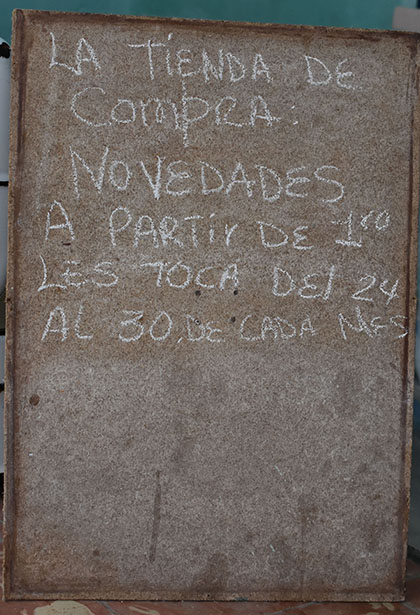 LA TIENDA DE
COMPRA
NOVEDADES
A PARTIR DE 1ro
LES TOCA DEL 24
AL 30 DE CADA MES